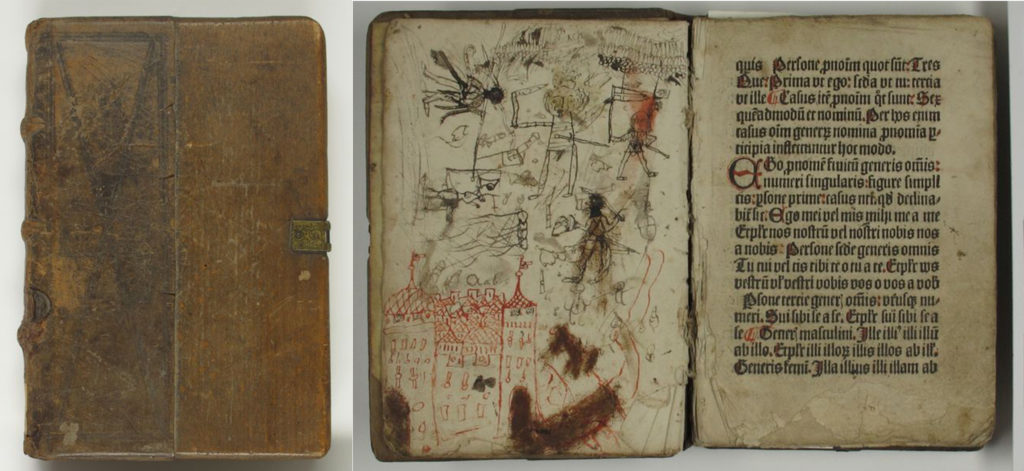 quis Persone pnoim quot sūt: Tres
Que: Prima vt ego: scda vt tu: tertia
vt ille Casus itē pnoim qͦt sunt: Sex
quēadmodū et nominū. Per hos enim
casus oīm generꝝ nomina pnomīa ꝑ-
ticipia inflectuntur hoc modo.
EGo pnomē finitū generis omīs:
numeri singularis: figure simpli
cis: psone prime: casus
bit̄ sic. Ego mei vel mis mihi me a me
Et plr nos nostrū vel nostri nobis nos
a nobis Persone scde generis omnis
Tu tui vel tis tibi te o tu a te. Et plr vos
vestrū vl vestri vobis vos o vos a vob
Psone tercie gener omīs: nu-
meri. Sui sibi se a se. Et plr sui sibi se a
se Generꝭ masculini. Ille illi illi illū
ab illo. Et plr illi illoꝝ illis illos ab ill
Generis femī. Illa illius illi illam ab